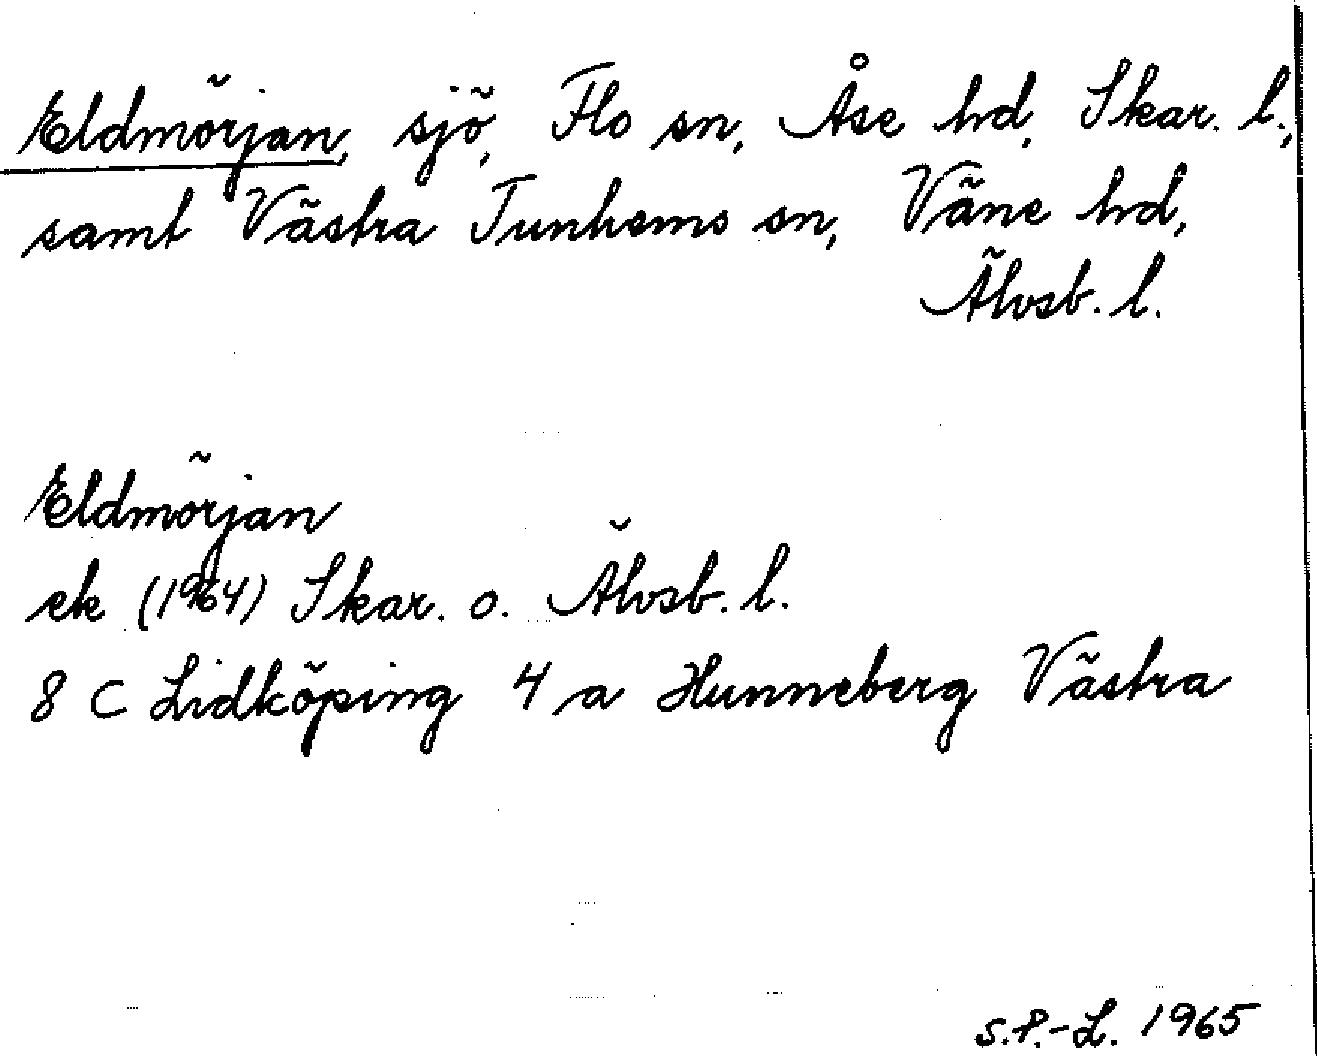 Eldmörjan, sjö, Flo sn, Åse hd, Skar. l.,
samt Västra Tunhems sn, Väne hd,
Älvsb. l.
Eldmörjan
ek (1964) Skar. o. Älvsb. l.
8 C Lidköping 4 a Hunneberg Västra
S.P.-L. 1965